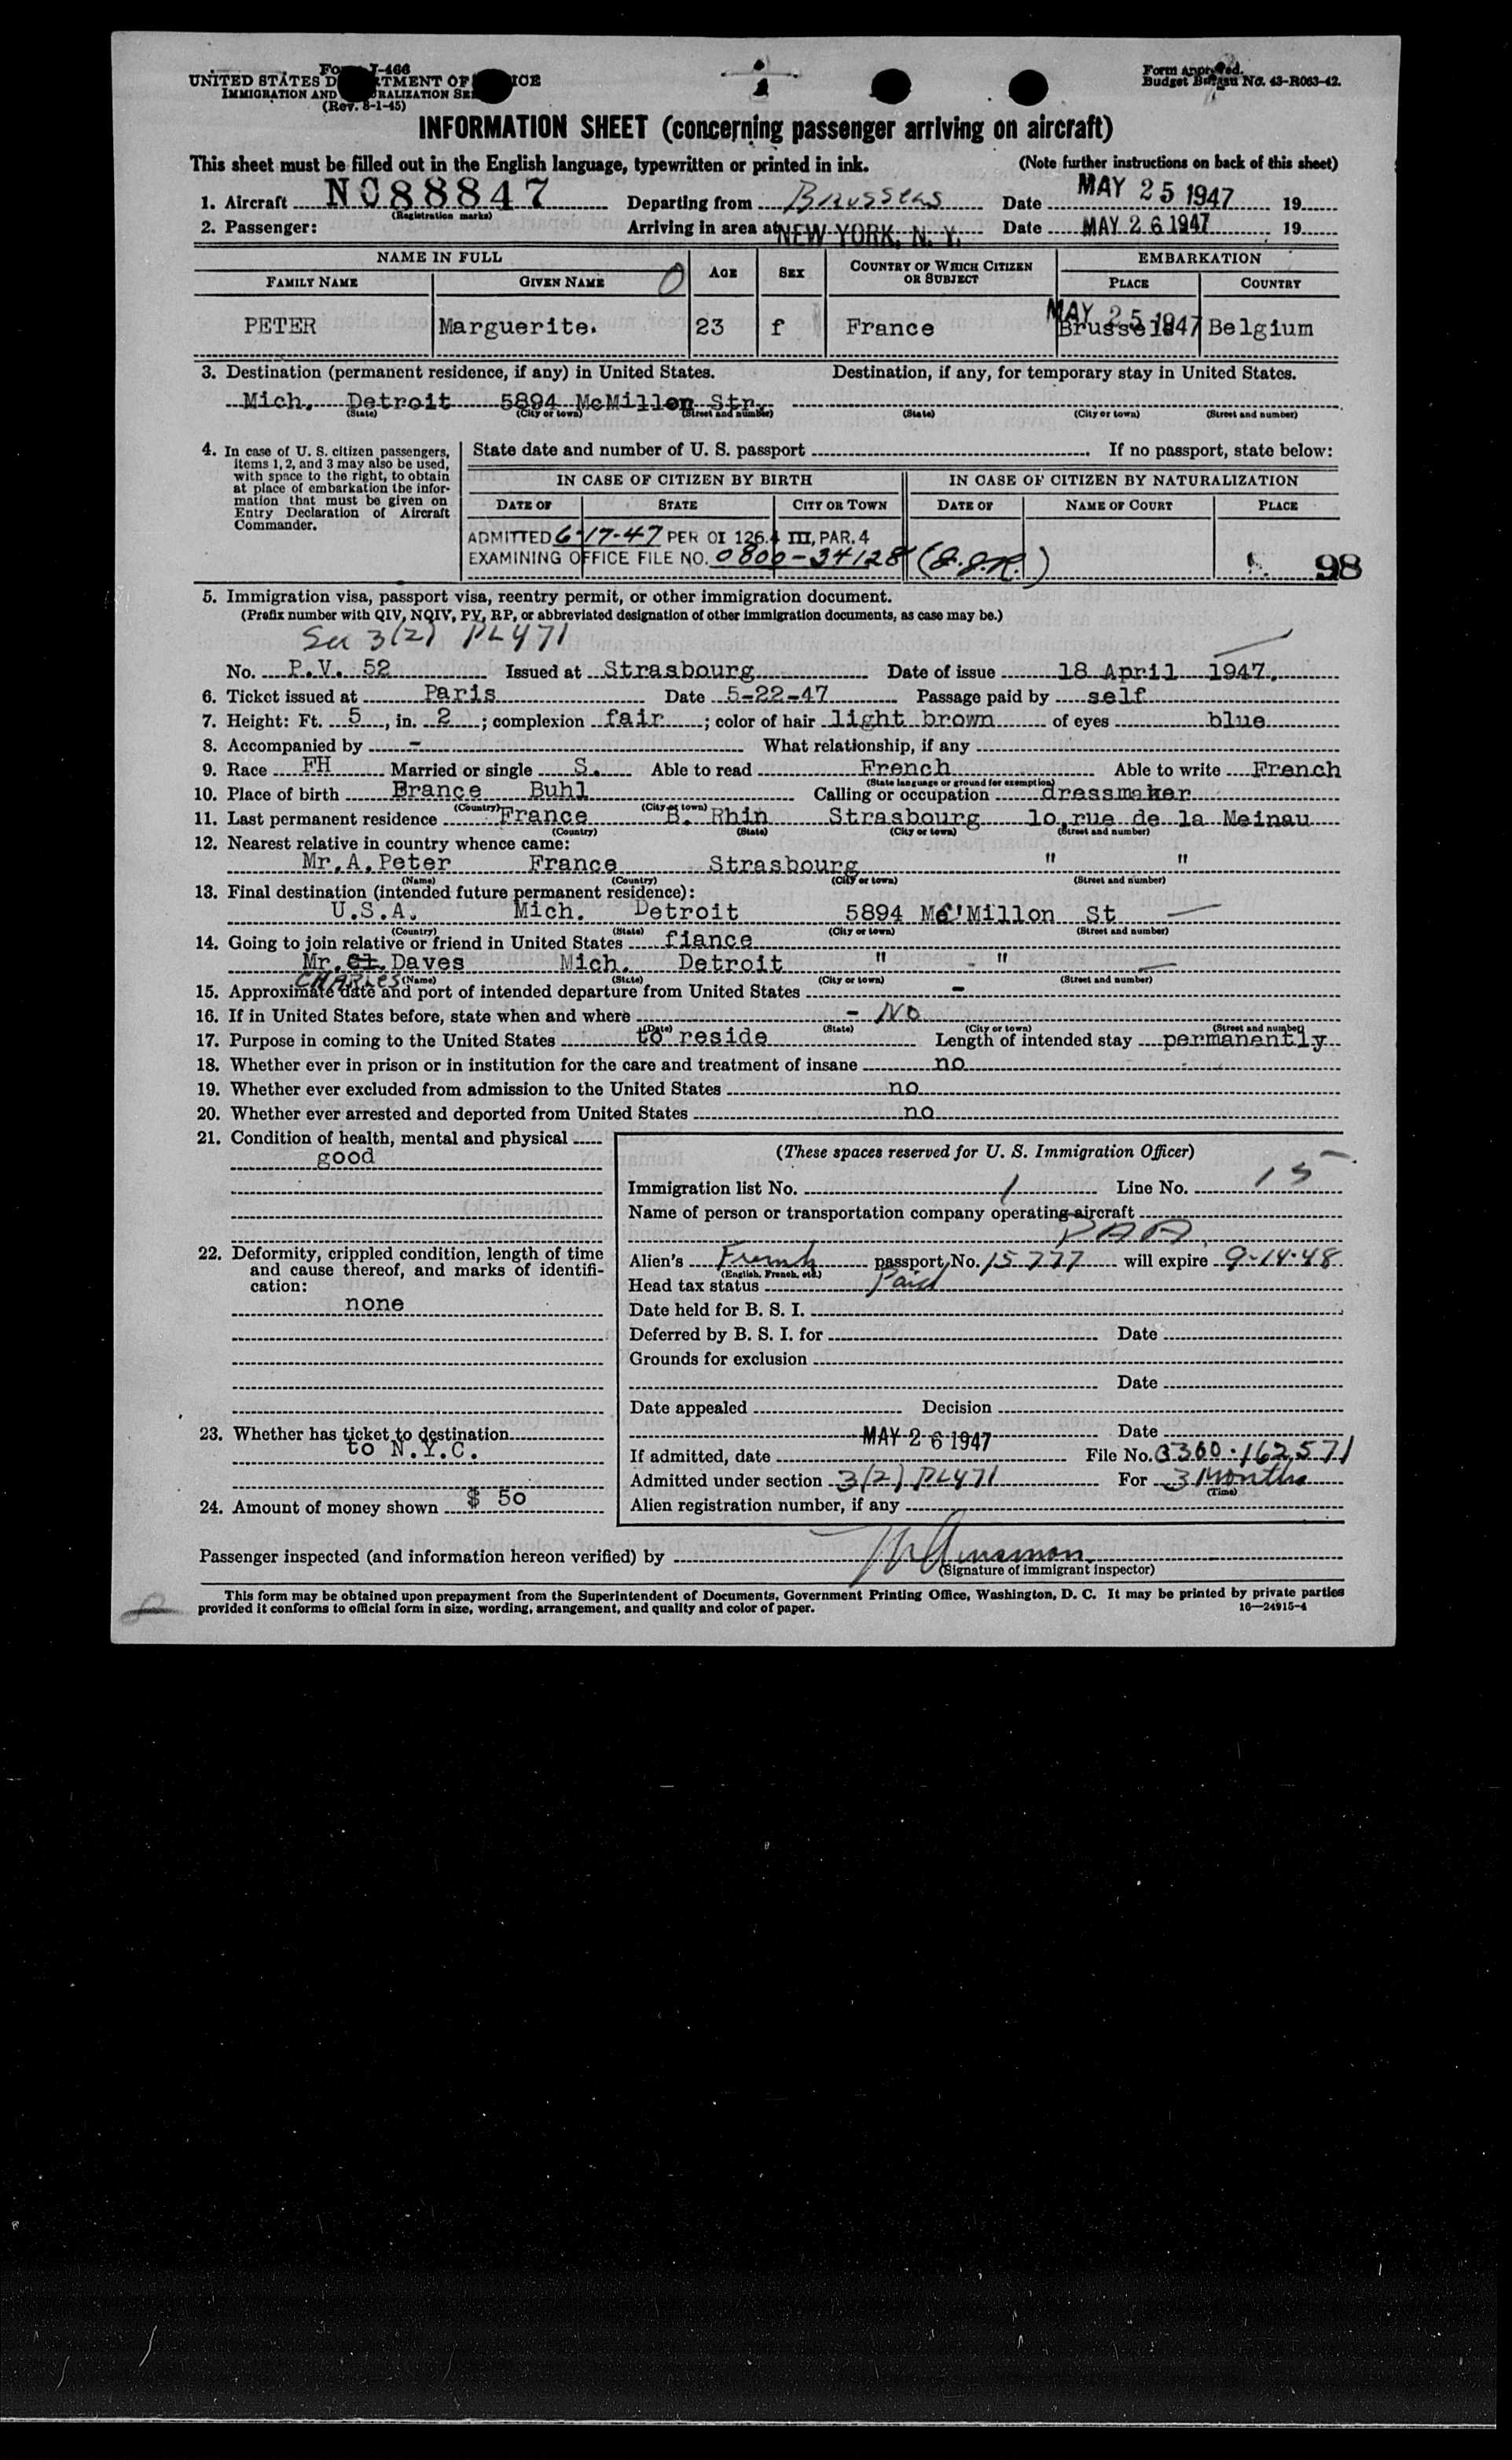 Form I-466
UNITED STATES DEPARTMENT OF JUSTICE
IMMIGRATION AND NATURALIZATION SERVICE
(Rev. 8-1-45)
Form Approved.
Budget Bureau No. 43-R063-42.
INFORMATION SHEET (concerning passenger arriving on aircraft)
This sheet must be filled out in the English language, typewritten or printed in ink. (Note further instructions on back of this sheet)
1. Aircraft NC88847 Departing from Brussels Date MAY 25 1947 19
(Registration marks)
2. Passenger: Arriving in area at NEW YORK, N. Y. Date MAY 26 1947 19
NAME IN FULL AGE SEX COUNTRY OF WHICH CITIZEN OR SUBJECT EMBARKATION
FAMILY NAME GIVEN NAME PLACE COUNTRY
MAY 25 1947
PETER Marguerite. 23 f France Brussels Belgium
3. Destination (permanent residence, if any) in United States. Destination, if any, for temporary stay in United States.
Mich. Detroit 5894 McMillon Str.
(State) (City or town) (Street and number) (State) (City or town) (Street and number)
4. In case of U. S. citizen passengers, items 1, 2, and 3 may also be used, with space to the right, to obtain at place of embarkation the information that must be given on Entry Declaration of Aircraft Commander.
State date and number of U. S. passport If no passport, state below:
IN CASE OF CITIZEN BY BIRTH IN CASE OF CITIZEN BY NATURALIZATION
DATE OF STATE CITY OR TOWN DATE OF NAME OF COURT PLACE
ADMITTED 6-17-47 PER OI 126.4 III, PAR. 4
EXAMINING OFFICE FILE NO. 0800-34128 98
5. Immigration visa, passport visa, reentry permit, or other immigration document.
(Prefix number with QIV, NQIV, PV, RP, or abbreviated designation of other immigration documents, as case may be.)
Sec 3(2) PL471
No. P.V. 52 Issued at Strasbourg Date of issue 18 April 1947.
6. Ticket issued at Paris Date 5-22-47 Passage paid by self
7. Height: Ft. 5, in. 2; complexion fair; color of hair light brown of eyes blue
8. Accompanied by - What relationship, if any
9. Race FH Married or single S. Able to read French Able to write French
(State language or ground for exemption)
10. Place of birth France Buhl Calling or occupation dressmaker
(Country) (City or town)
11. Last permanent residence France B. Rhin Strasbourg 10 rue de la Meinau
(Country) (State) (City or town) (Street and number)
12. Nearest relative in country whence came:
Mr.A.Peter France Strasbourg " "
(Name) (Country) (City or town) (Street and number)
13. Final destination (intended future permanent residence):
U.S.A. Mich. Detroit 5894 Mc'Millon St
(Country) (State) (City or town) (Street and number)
14. Going to join relative or friend in United States fiance
Mr. Ct. Daves Mich. Detroit " - "
CHARLES (Name) (State) (City or town) (Street and number)
15. Approximate date and port of intended departure from United States -
16. If in United States before, state when and where - NO
(Date) (State) (City or town) (Street and number)
17. Purpose in coming to the United States to reside Length of intended stay permanently
18. Whether ever in prison or in institution for the care and treatment of insane no
19. Whether ever excluded from admission to the United States no
20. Whether ever arrested and deported from United States no
21. Condition of health, mental and physical
good
22. Deformity, crippled condition, length of time and cause thereof, and marks of identification:
none
23. Whether has ticket to destination
to N.Y.C.
24. Amount of money shown $ 50
(These spaces reserved for U. S. Immigration Officer)
Immigration list No. 1 Line No. 15
Name of person or transportation company operating aircraft
PAA
Alien's French passport No. 15777 will expire 9-14-48
(English, French, etc.)
Head tax status Paid
Date held for B. S. I.
Deferred by B. S. I. for Date
Grounds for exclusion
Date
Date appealed Decision
Date
If admitted, date MAY 26 1947 File No. 3300-162571
Admitted under section 3(2) PL471 For 3 Months
(Time)
Alien registration number, if any
Passenger inspected (and information hereon verified) by
(Signature of immigrant inspector)
This form may be obtained upon prepayment from the Superintendent of Documents, Government Printing Office, Washington, D. C. It may be printed by private parties
provided it conforms to official form in size, wording, arrangement, and quality and color of paper.
16—24915-4